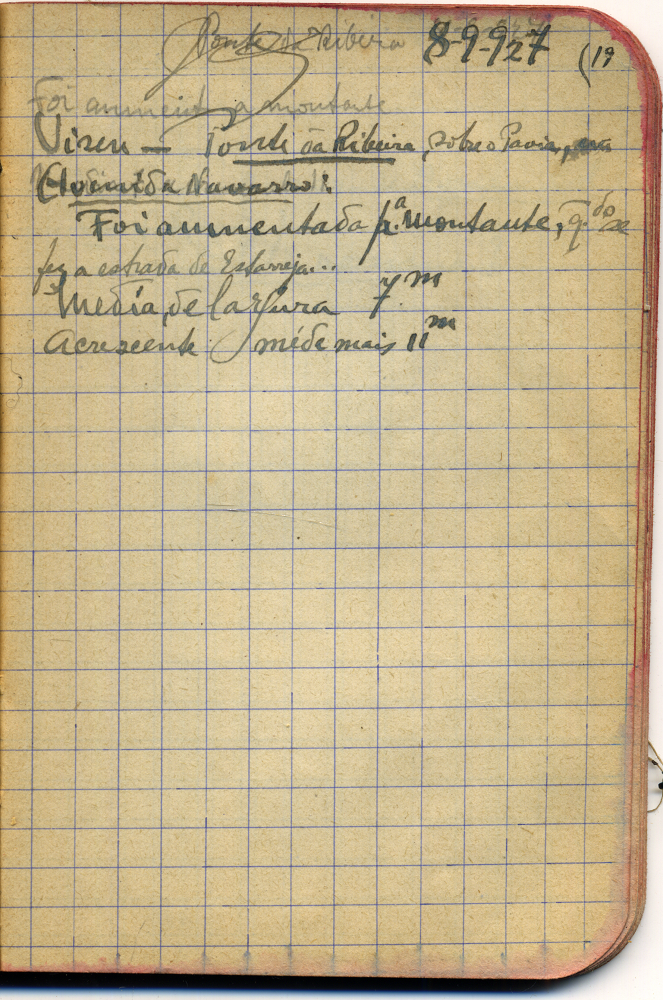 Ponte da Ribeira 8-9-927 (19
Foi aumentada a montante
Vizeu — Ponte da Ribeira, sobre o Pavia, na
Avenida Navarro:
Foi aumentada p.ª montante, q.do se
fez a estrada de Estarreja...
Media, de largura 7.m
Acrescente: méde mais 11m